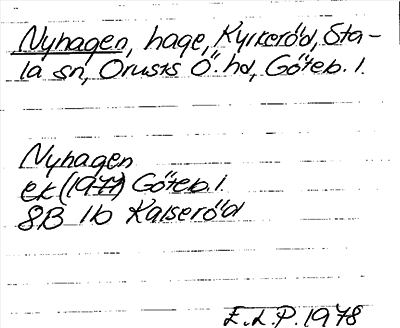 Nyhagen, hage, Kyrkeröd, Sta-
la sn, Orusts Ö. hd, Göteb. l.
Nyhagen
ek (1977) Göteb. l.
8B 1b Kalseröd
E.L.P. 1978